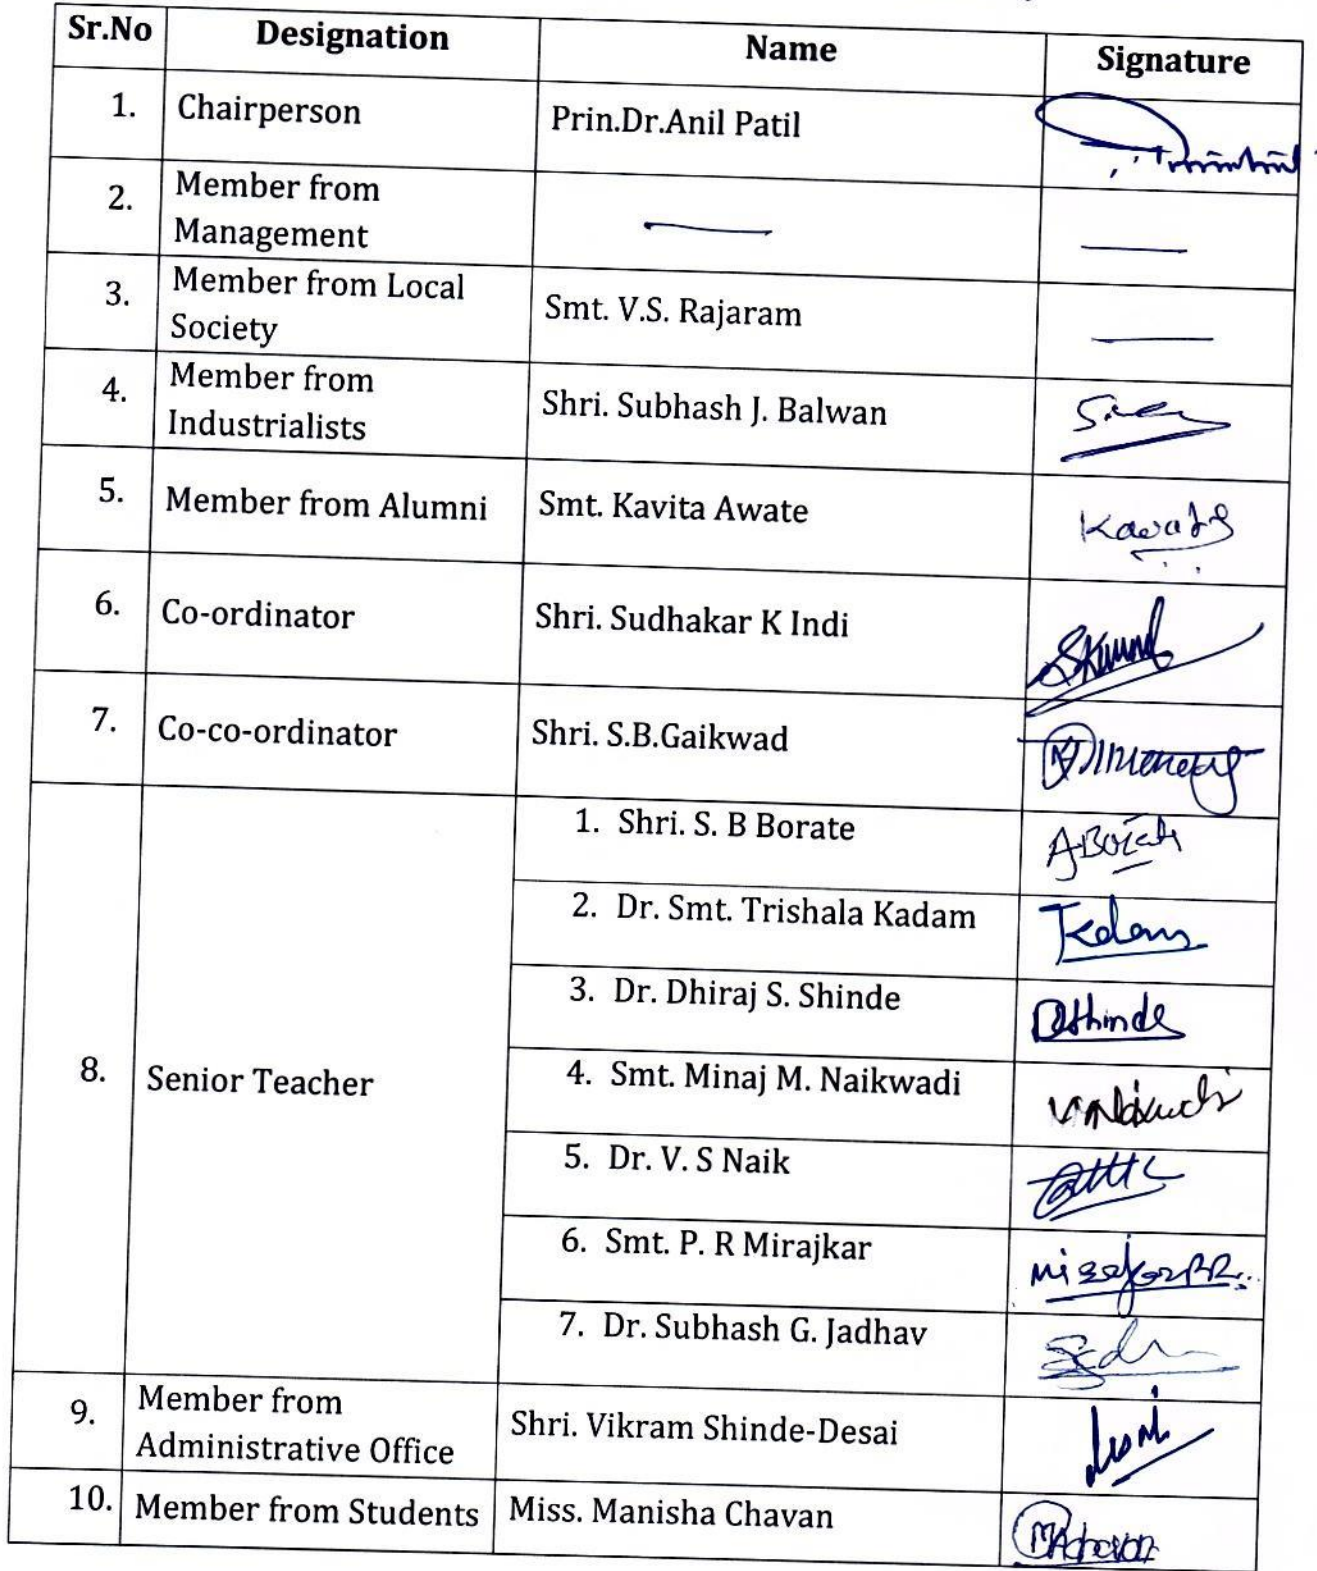 Sr.No Designation Name Signature
1. Chairperson Prin.Dr.Anil Patil
2. Member from
Management — —
3. Member from Local
Society Smt. V.S. Rajaram —
4. Member from
Industrialists Shri. Subhash J. Balwan
5. Member from Alumni Smt. Kavita Awate
6. Co-ordinator Shri. Sudhakar K Indi
7. Co-co-ordinator Shri. S.B.Gaikwad
8. Senior Teacher
1. Shri. S. B Borate
2. Dr. Smt. Trishala Kadam
3. Dr. Dhiraj S. Shinde
4. Smt. Minaj M. Naikwadi
5. Dr. V. S Naik
6. Smt. P. R Mirajkar
7. Dr. Subhash G. Jadhav
9. Member from
Administrative Office Shri. Vikram Shinde-Desai
10. Member from Students Miss. Manisha Chavan